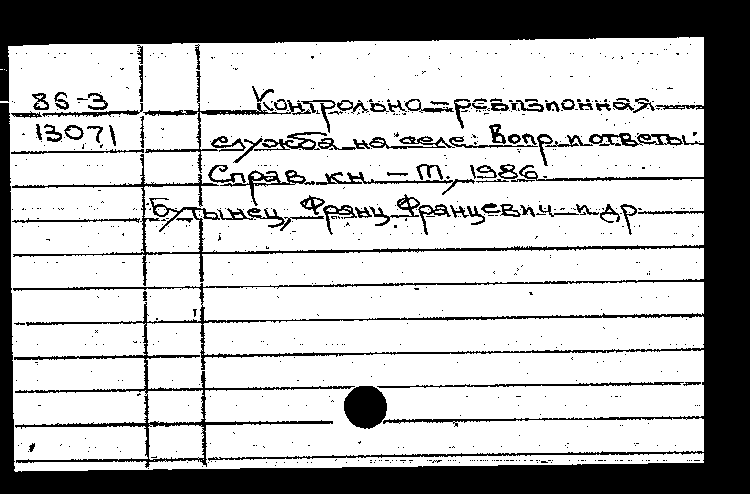 86-3 Контрольно-ревизионная
13071 служба на селе: Вопр. и ответы:
Справ. кн. - М., 1986.
Бутынец, Франц Францевич и др.